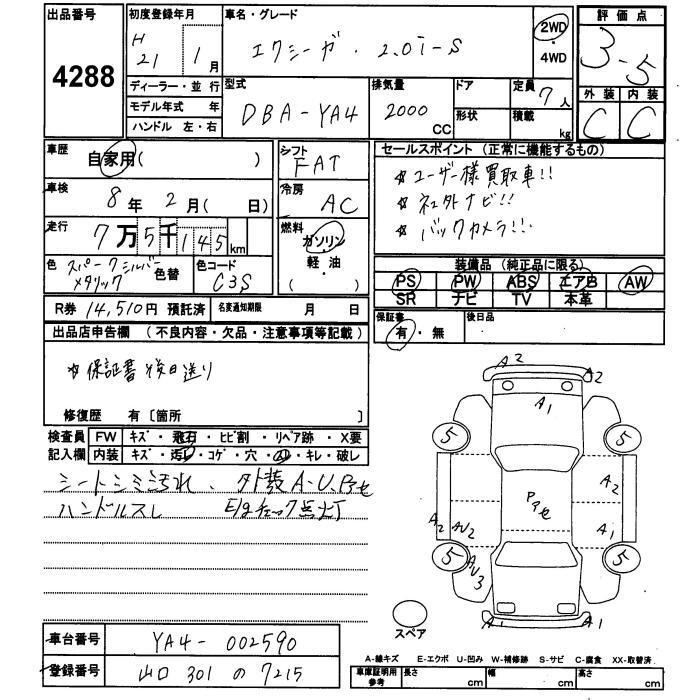 出品番号
4288
初度登録年月
H 21 1月
ディーラー・並行
モデル年式 年
ハンドル 左・右
車名・グレード
エクシーガ・2.0i-S
2WD
・
4WD
型式
DBA-YA4
排気量
2000 CC
ドア
形状
定員 7人
積載 kg
評価点
3-5
外装 内装
C C
車歴
自家用( )
車検
8年2月( 日)
走行
7万5千145km
色
スパークシルバー
メタリック
色替
色コード
C3S
シフト
FAT
冷房
AC
燃料
ガソリン
軽・油
( )
セールスポイント (正常に機能するもの)
☆ユーザー様買取車!!
☆社外ナビ!!
☆バックカメラ!!
装備品 (純正品に限る)
PS PW ABS エアB AW
SR ナビ TV 本革
R券 14,510円 預託済
名変通知期限 月 日
保証書
有・無
後日品
出品店申告欄 (不良内容・欠品・注意事項等記載)
☆保証書後日送り
修復歴 有〔箇所 〕
検査員
記入欄
FW キズ・飛石・ヒビ割・リペア跡・X要
内装 キズ・汚れ・コゲ・穴・スレ・キレ・破レ
シートシミ汚れ、外装A-U.Pアセ
ハンドルスレ E/gチェック点灯
A2
A2
A1
5
5
Pアセ
A2
A2
AU2
A1
5
5
AU3
A1
A1
スペア
車台番号
YA4-002590
登録番号
山口 301 の 7215
A-線キズ E-エクボ U-凹み W-補修跡 S-サビ C-腐食 XX-取替済
車庫証明用
参考
長さ cm
幅 cm
高さ cm